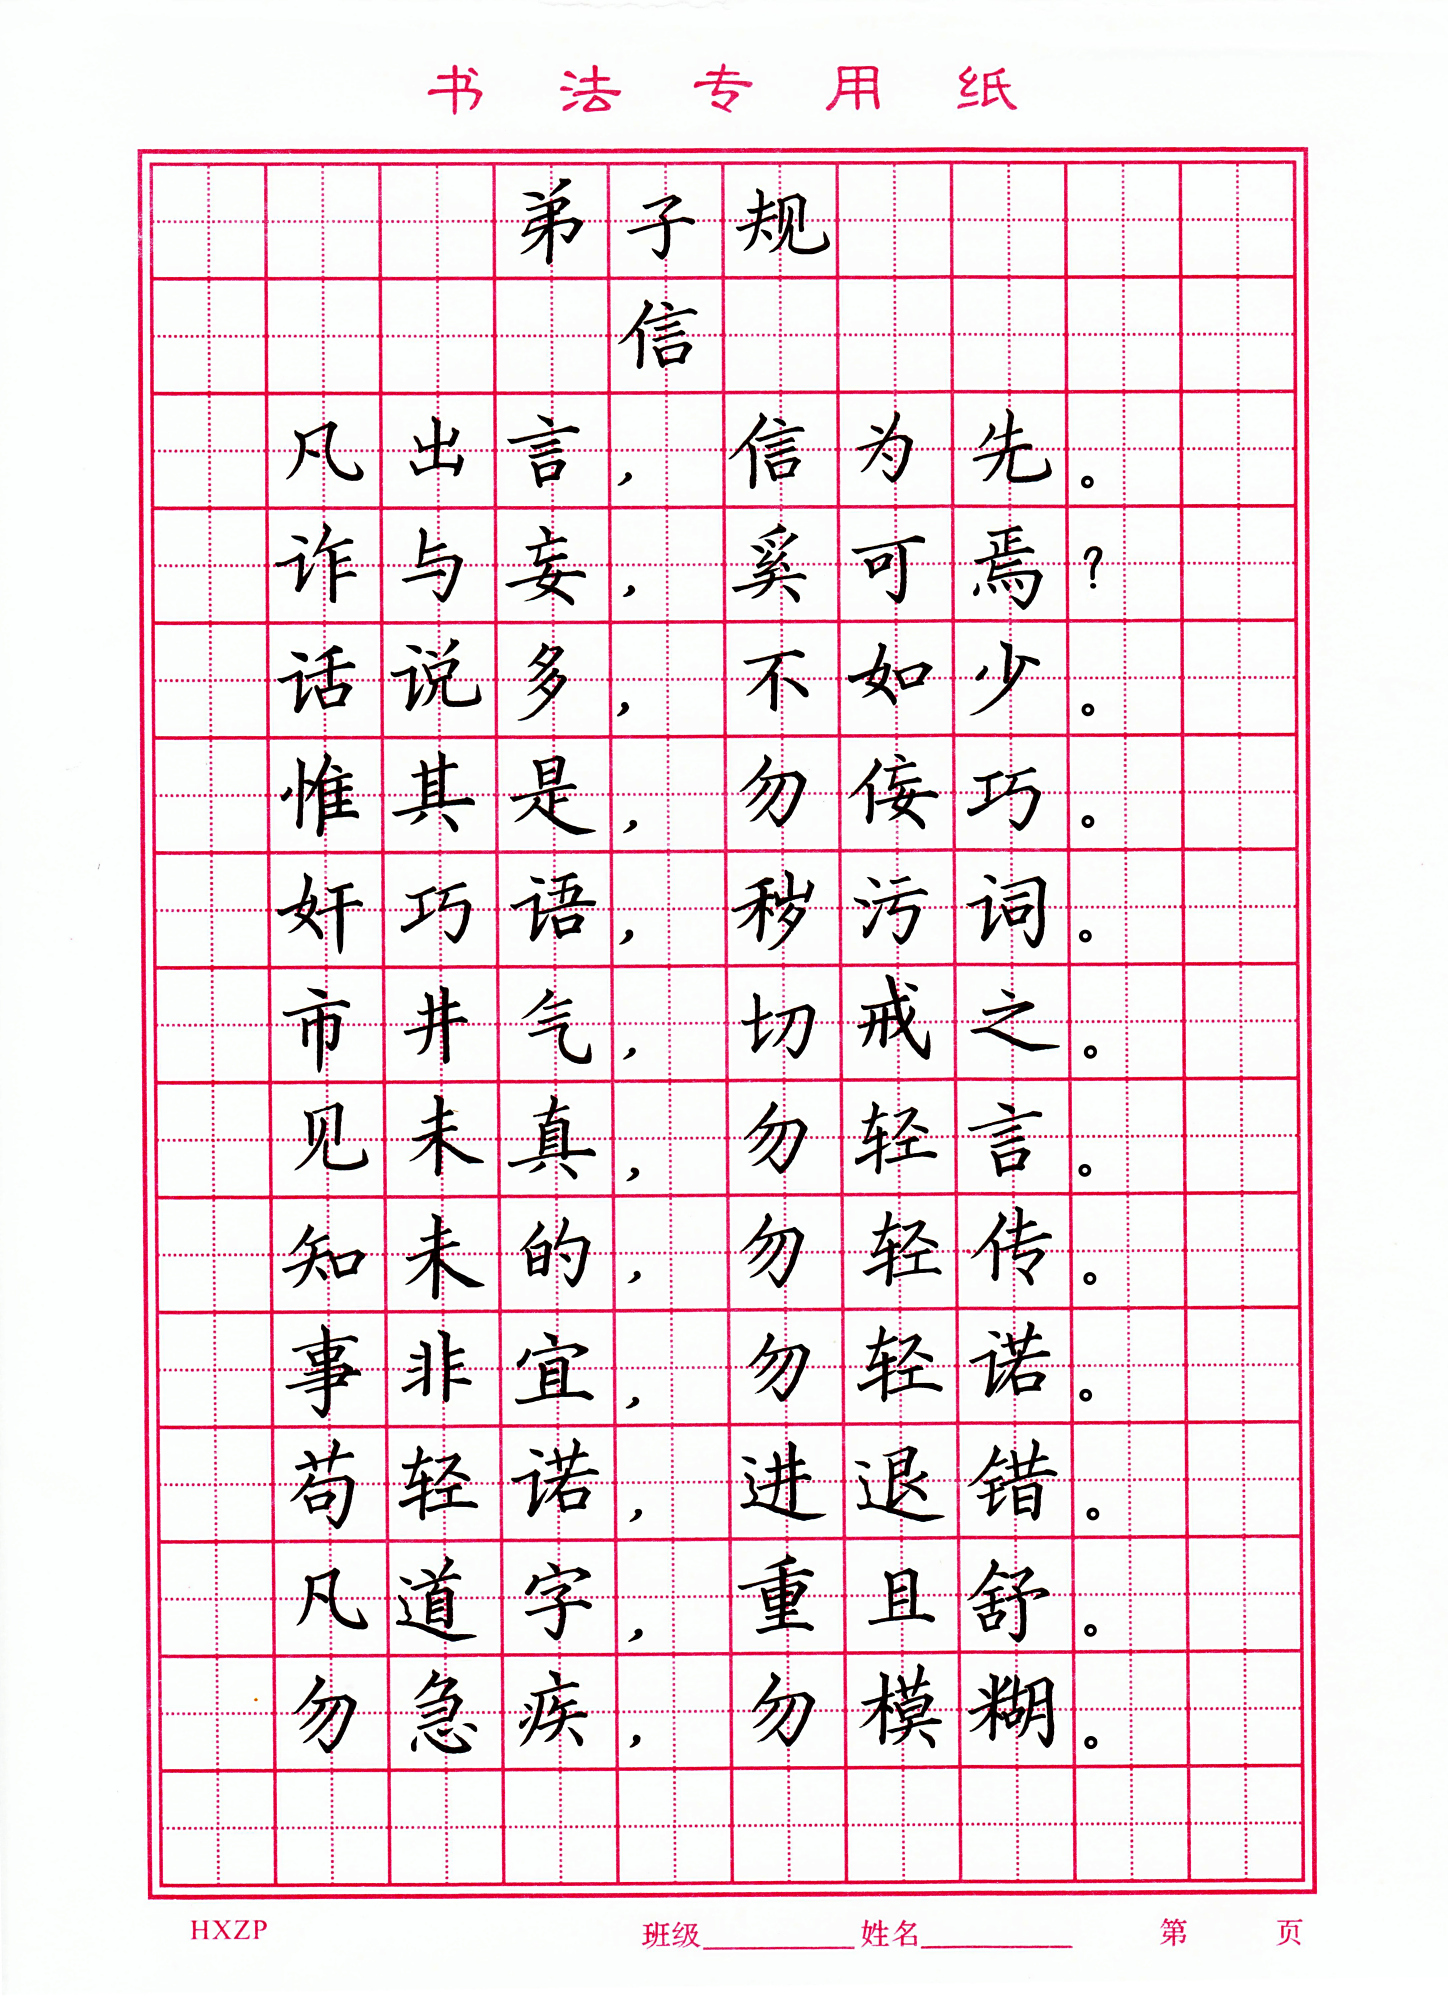 书法专用纸
弟子规
信
凡出言，信为先。
诈与妄，奚可焉？
话说多，不如少。
惟其是，勿佞巧。
奸巧语，秽污词。
市井气，切戒之。
见未真，勿轻言。
知未的，勿轻传。
事非宜，勿轻诺。
苟轻诺，进退错。
凡道字，重且舒。
勿急疾，勿模糊。
HXZP 班级 姓名 第 页